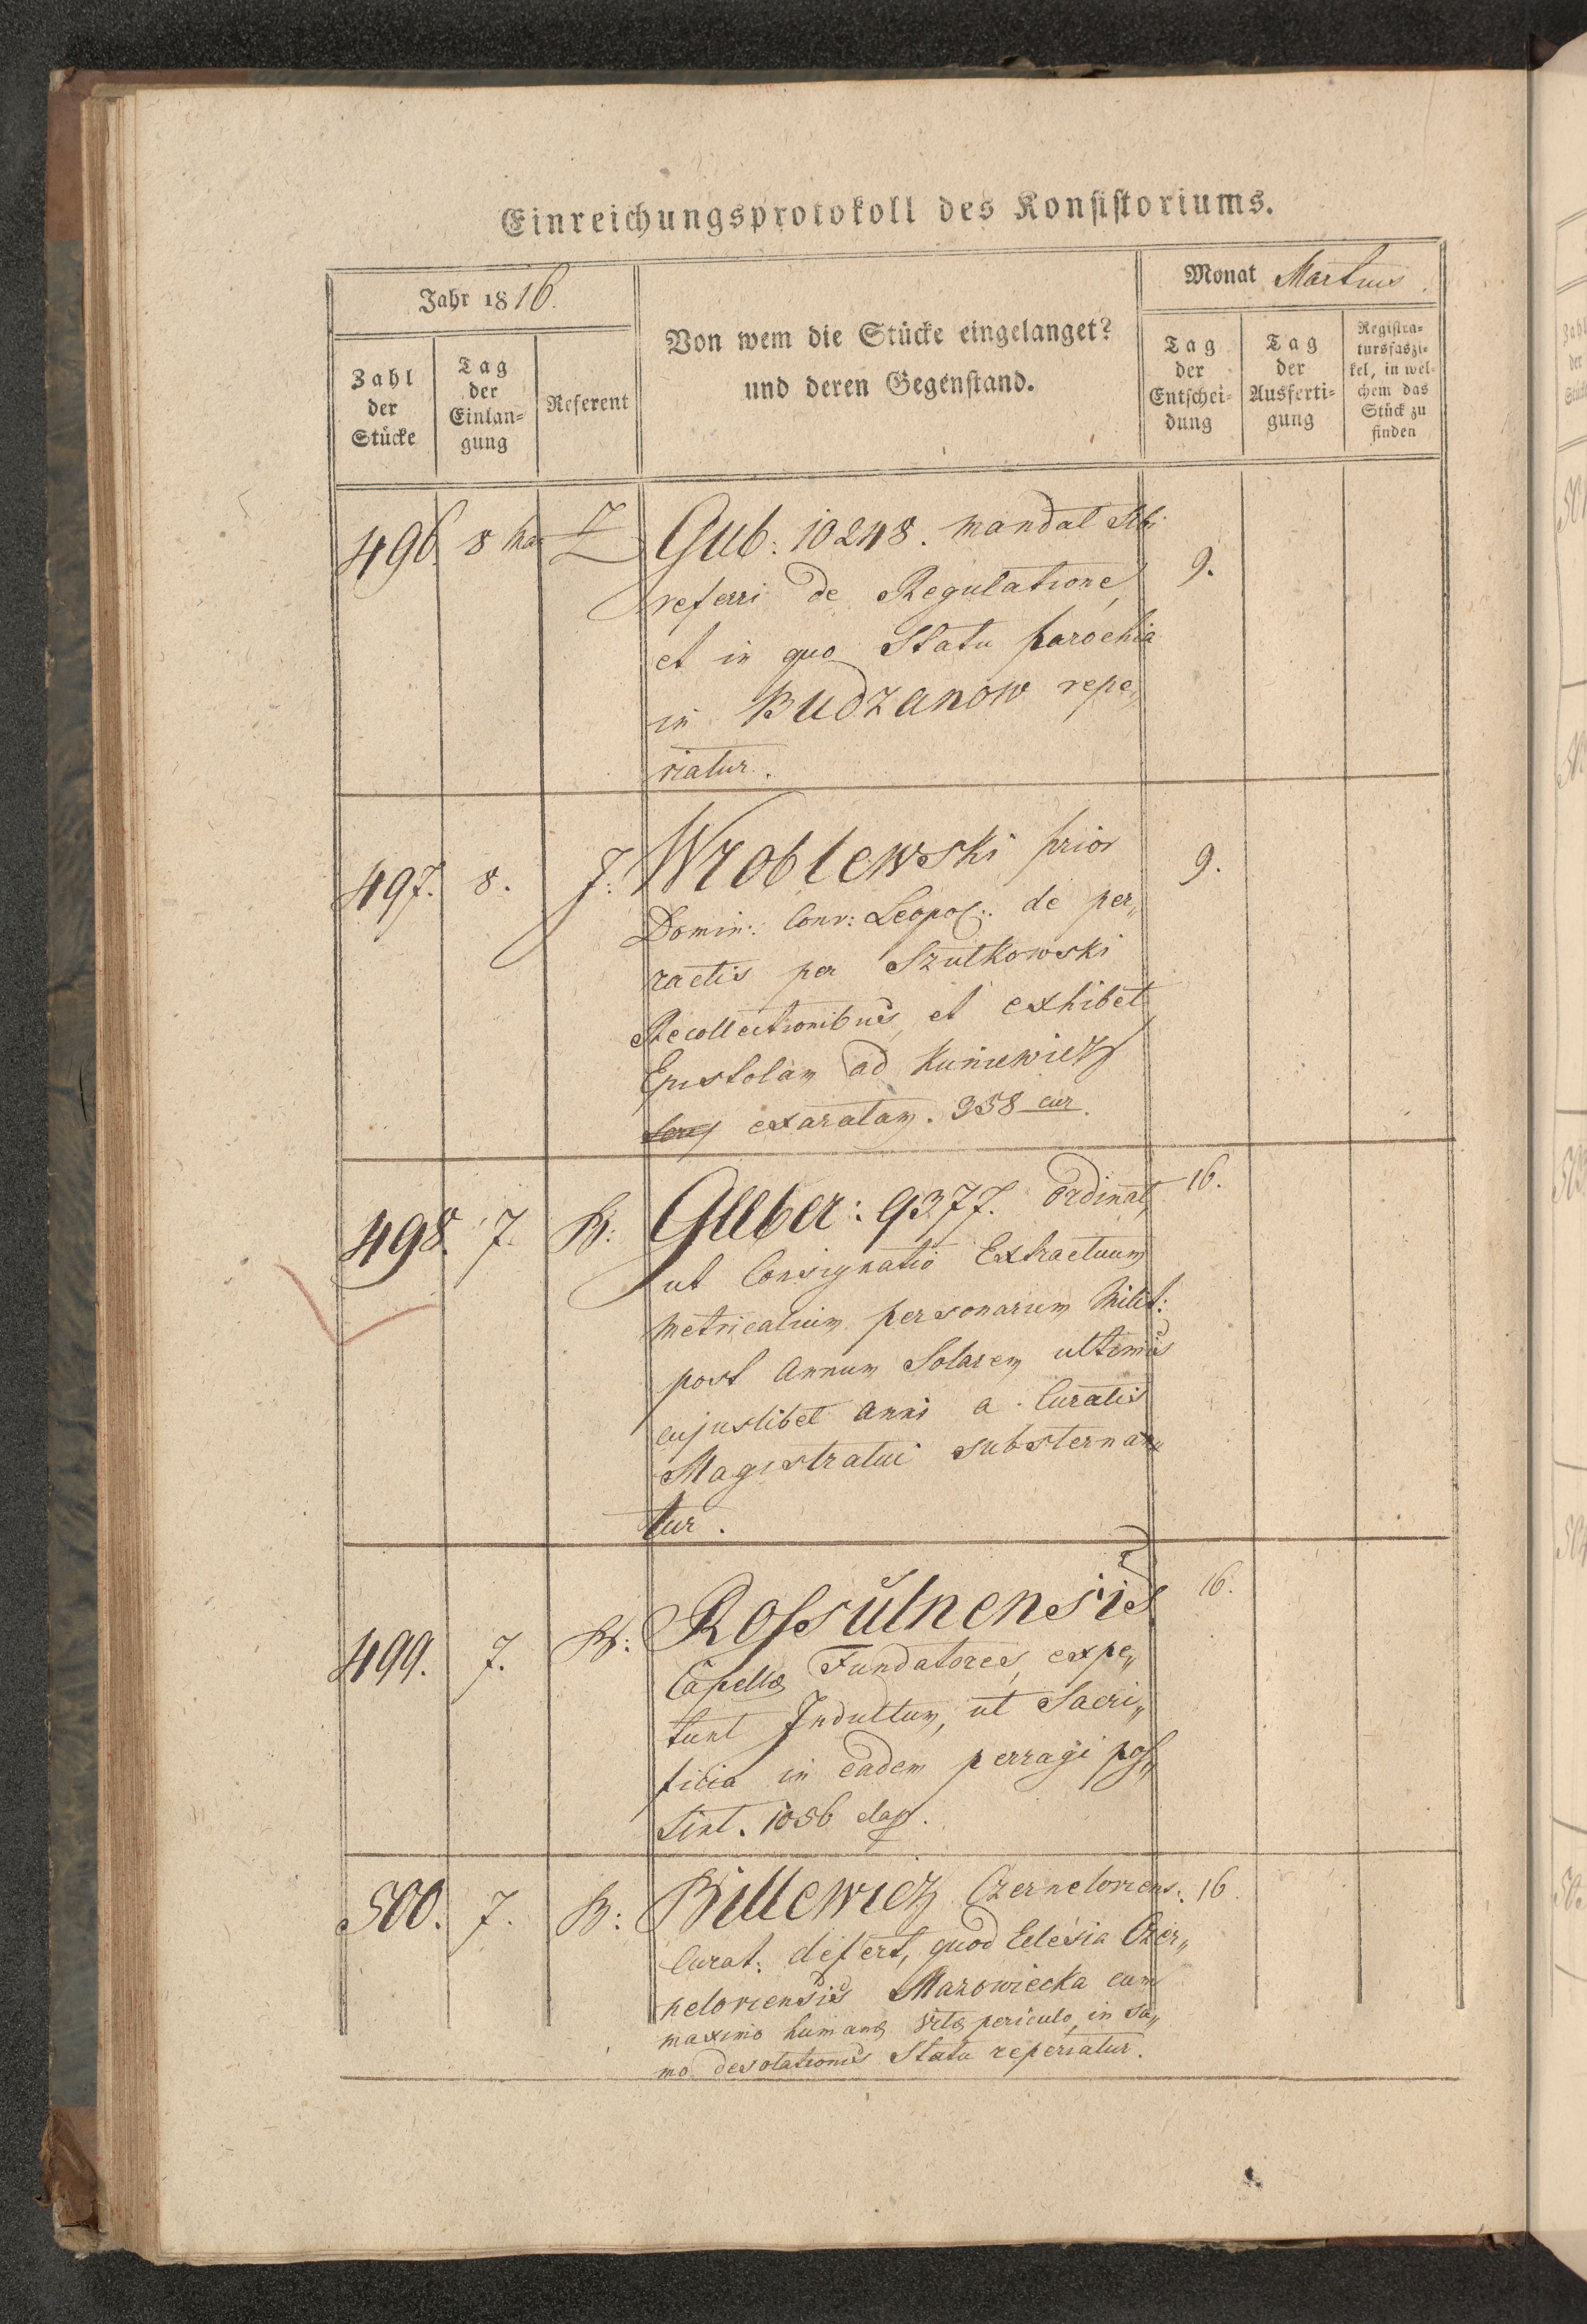 Einreichungsprotokoll des Konsistoriums.
Jahr 1816.
Von wem die Stücke eingelanget?
und deren Gegenstand.
Monat Martius.
Zahl
der
Stücke
Tag
der
Einlan-
gung
Referent
Tag
der
Entschei-
dung
Tag
der
Ausferti-
gung
Registra-
tursfaszi-
kel, in wel-
chem das
Stück zu
finden
496. 8 Gub: 10248. mandat Sibi 9.
referri de Regulatione,
et in quo Statu parochia
in Budzanow repe„
riatur.
497. 8. J: Wroblewski prior 9.
Domin: Conv: Leopol: de per„
ractis per Szutkowski
Recollectionibus, et exhibet
Epistolam ad Kuniewicz
exaratam. 358 cur.
498. 7. B: Guber: 9377. ordinat, 16.
ut Consignatio Extractuum
metricalium personarum Milit:
post Annum Solarem ultimis
cujuslibet anni a Curatis
Magistratui substernan„
tur.
499. 7. B: Rossulnensis 16.
Capellæ Fundatores, expe„
tunt Indultum, ut Sacri„
ficia in eadem perragi pos„
sint. 1056 elap.
500. 7. B: Billewicz Czerneloviens: 16.
Curat: defert, quod Eclesia Czer„
neloviensis Mazowiecka cum
maximo humanæ vitæ periculo, in sa„
mo desolationis Statu reperiatur.